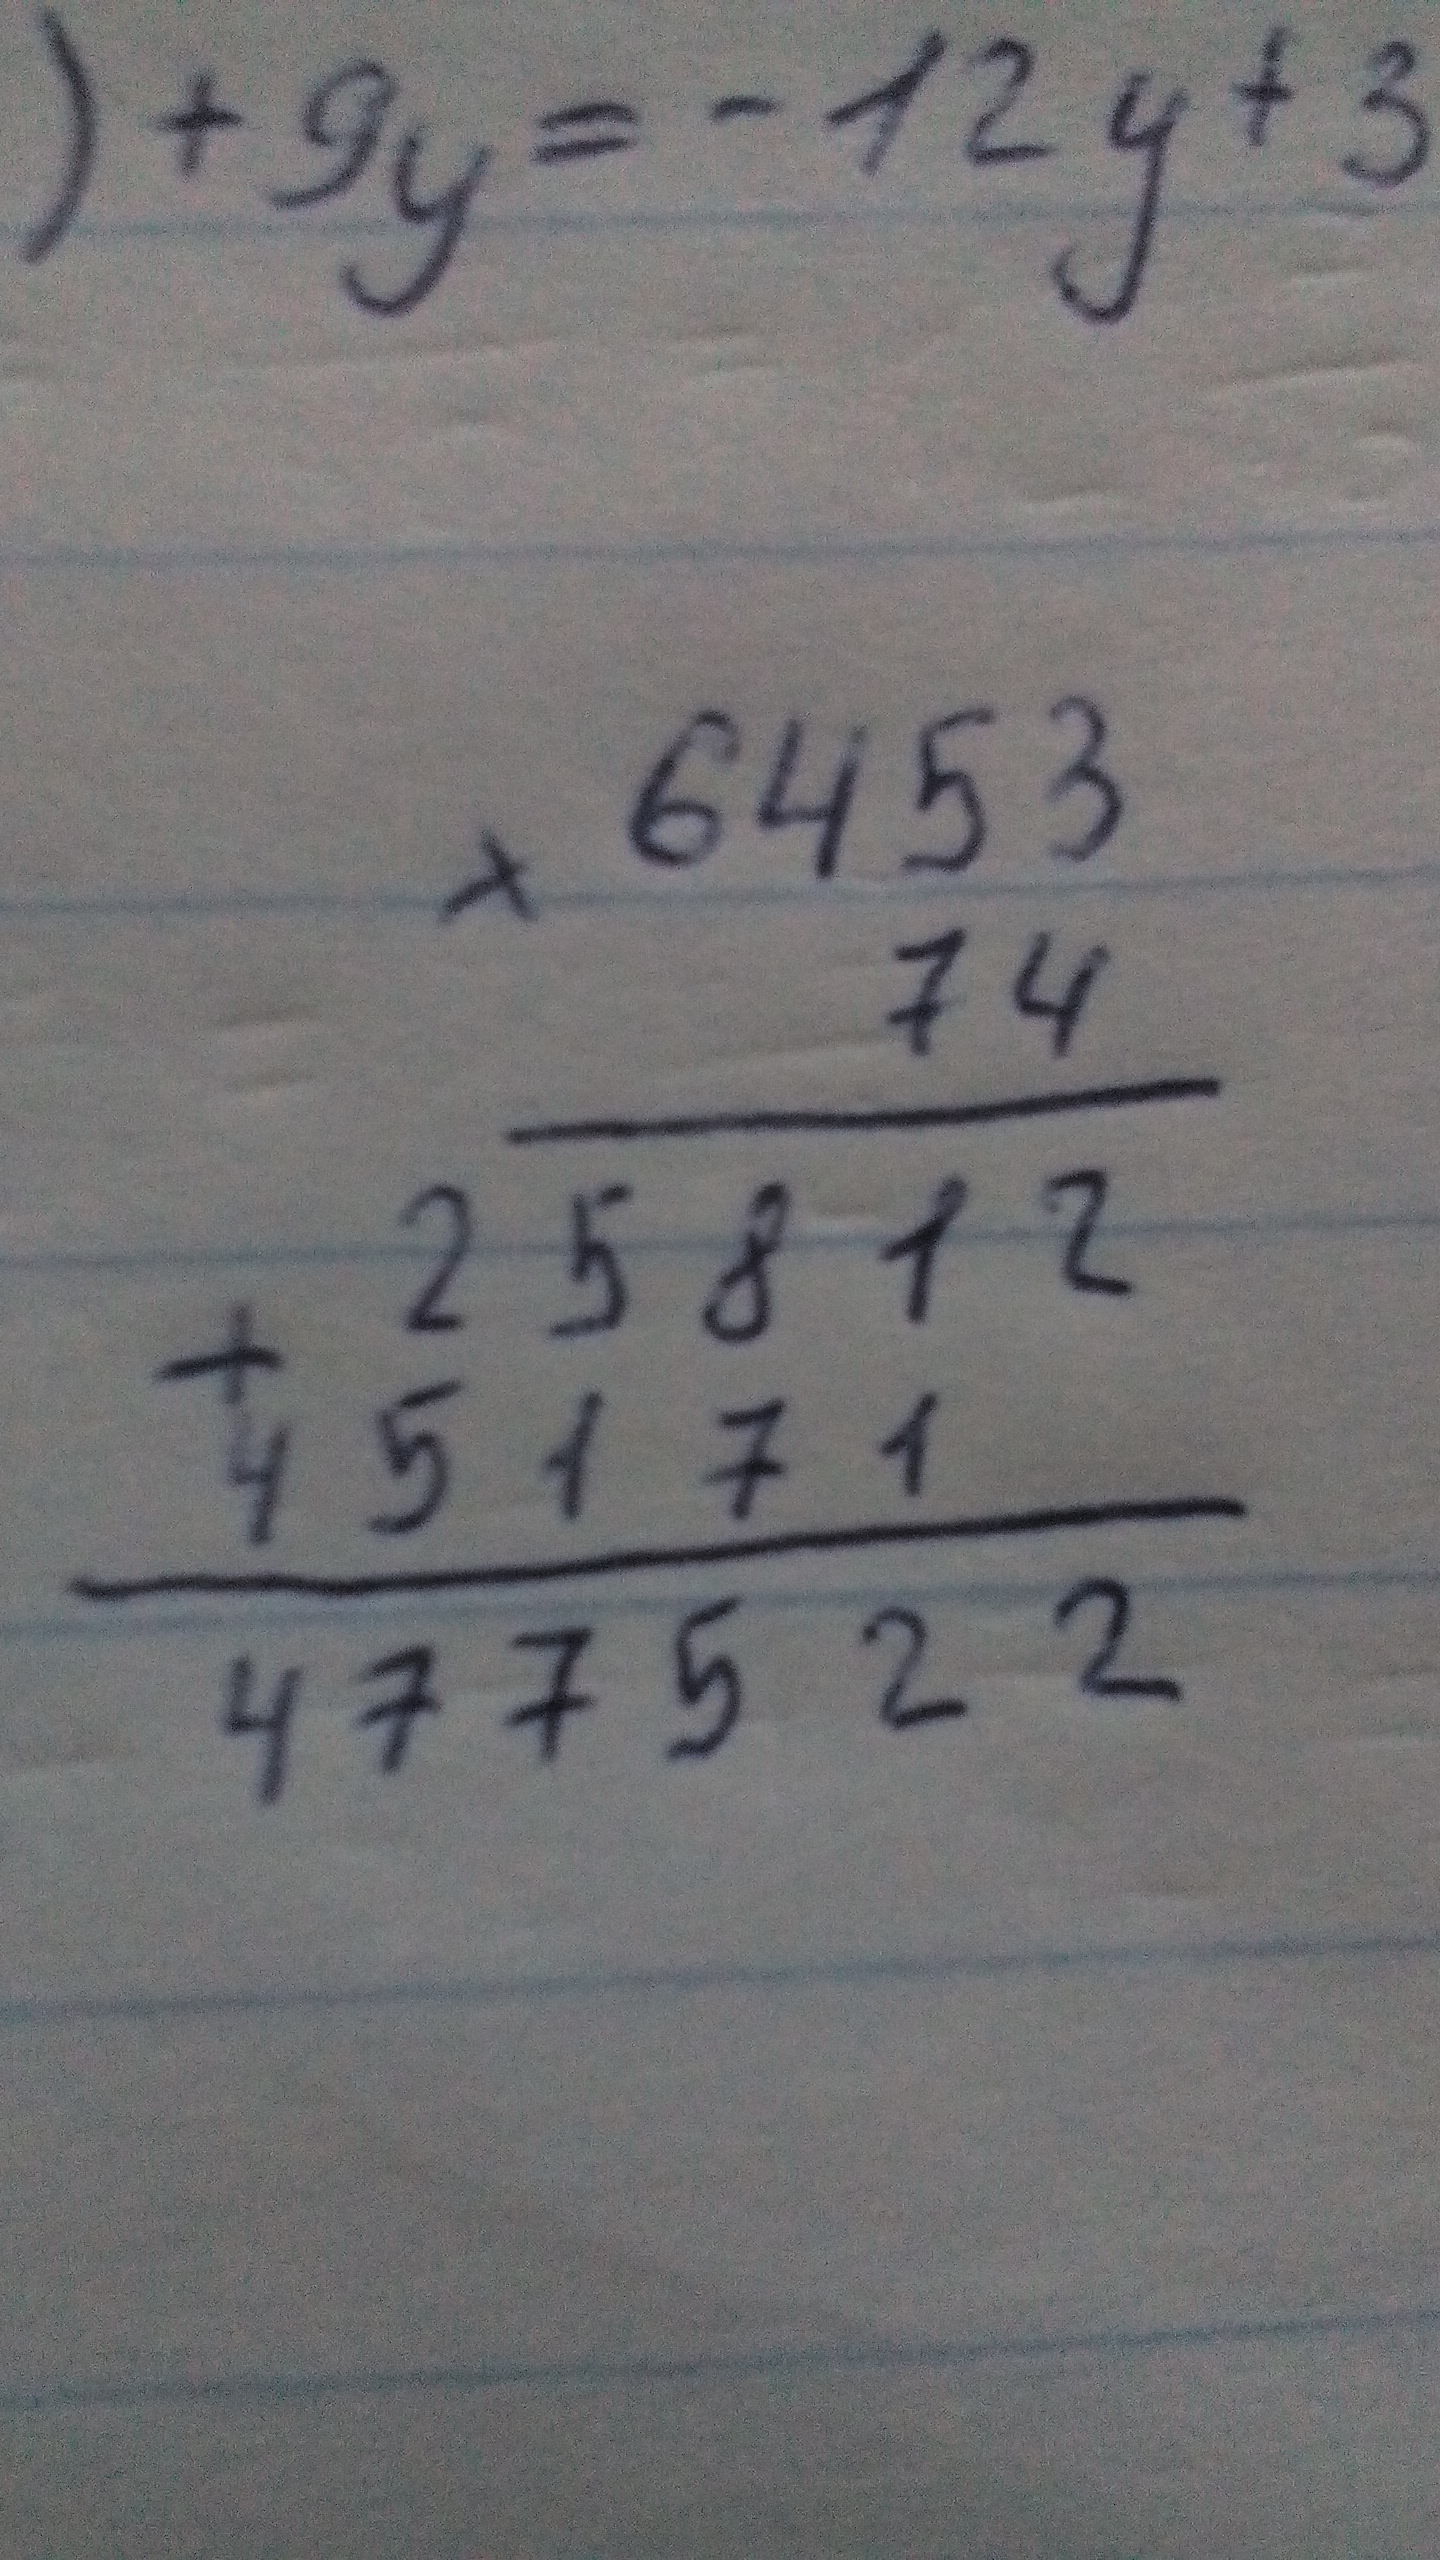 ) + 9y = - 12y + 3
6453
×
74
25812
+
45171
477522